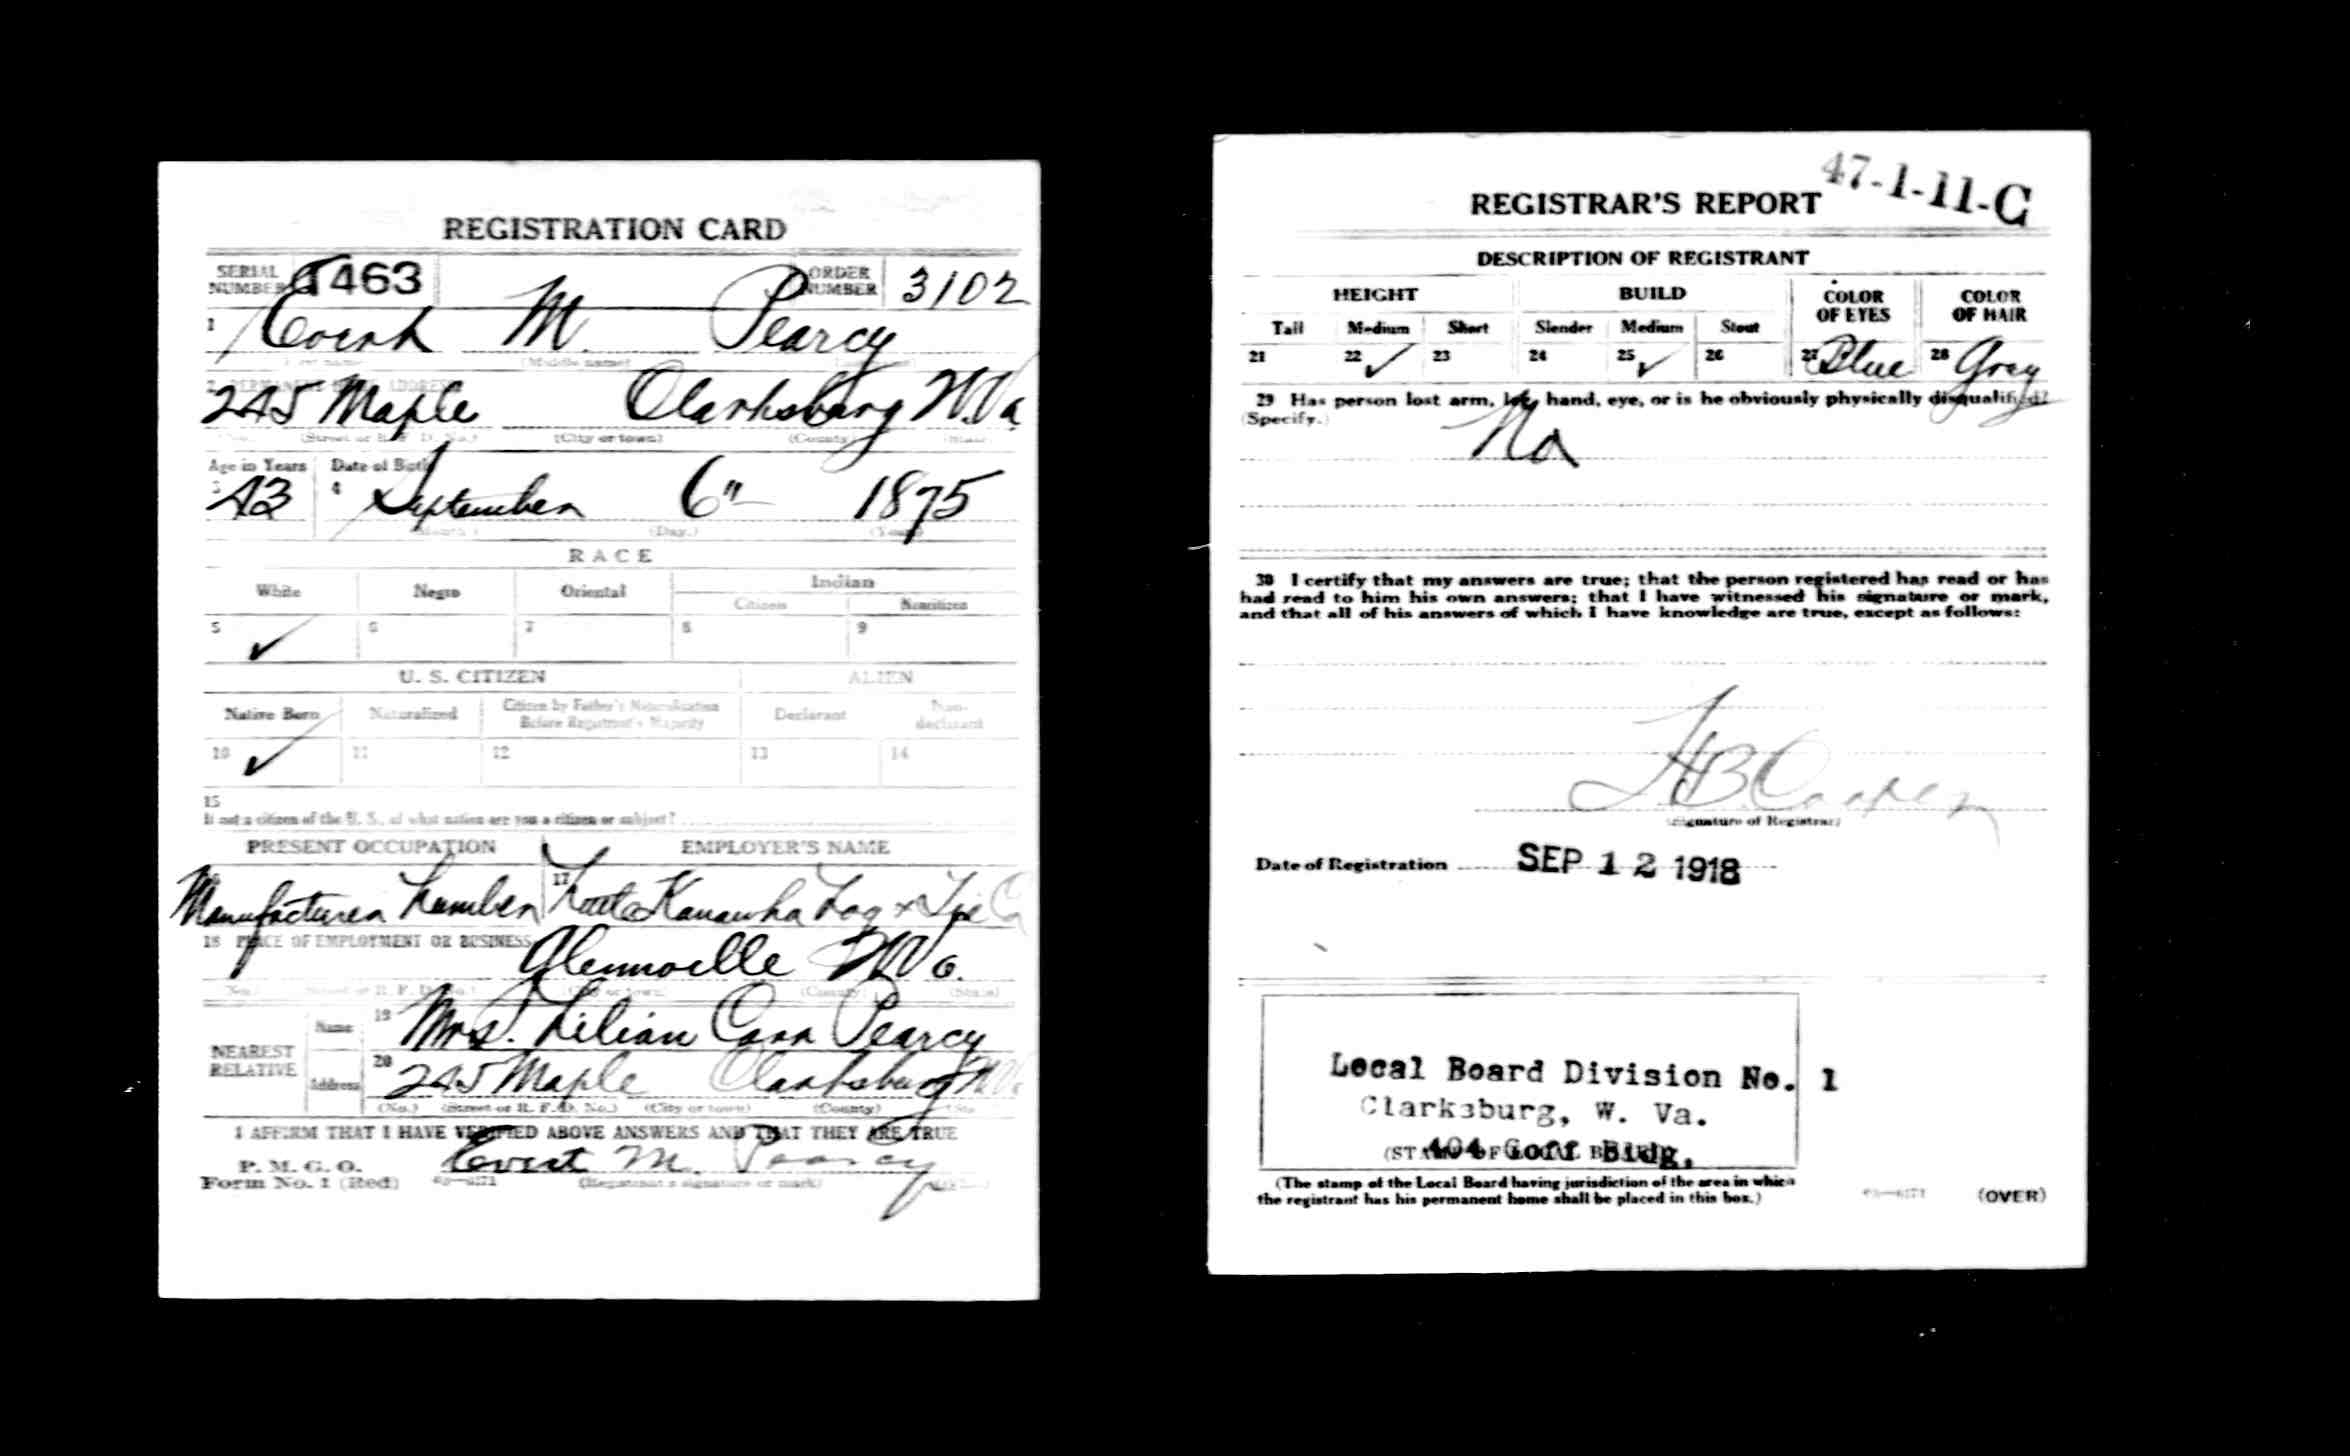 REGISTRATION CARD
SERIAL NUMBER 1463 ORDER NUMBER 3102
1 Evert M. Pearcy
(First name) (Middle name)
2 PERMANENT HOME ADDRESS
245 Maple Clarksburg W.Va.
(No.) (Street or R. F. D. No.) (City or town) (County) (State)
Age in Years Date of Birth
3 43 4 September 6" 1875
(Month.) (Day.) (Year.)
RACE
White Negro Oriental Indian
Citizen Noncitizen
5 ✓ 6 7 8 9
U. S. CITIZEN ALIEN
Native Born Naturalized Citizen by Father's Naturalization Before Registrant's Majority Declarant Non-declarant
10 ✓ 11 12 13 14
15
If not a citizen of the U. S., of what nation are you a citizen or subject?
PRESENT OCCUPATION EMPLOYER'S NAME
16 Manufacturer Lumber 17 Kanawha Log & Tie Co
18 PLACE OF EMPLOYMENT OR BUSINESS
Glennville W Va.
(No.) (Street or R. F. D. No.) (City or town) (County) (State)
NEAREST RELATIVE
Name 19 Mrs. Lilian Pearcy
Address 20 245 Maple Clarksburg W Va
(No.) (Street or R. F. D. No.) (City or town) (County) (State)
I AFFIRM THAT I HAVE VERIFIED ABOVE ANSWERS AND THAT THEY ARE TRUE
P. M. G. O.
Form No. 1 (Red) Evert M. Pearcy
(Registrant's signature or mark)
47-1-11-C
REGISTRAR'S REPORT
DESCRIPTION OF REGISTRANT
HEIGHT BUILD COLOR OF EYES COLOR OF HAIR
Tall Medium Short Slender Medium Stout
21 22 ✓ 23 24 25 ✓ 26 27 Blue 28 Gray
29 Has person lost arm, leg, hand, eye, or is he obviously physically disqualified?
(Specify.)
No
30 I certify that my answers are true; that the person registered has read or has
had read to him his own answers; that I have witnessed his signature or mark,
and that all of his answers of which I have knowledge are true, except as follows:
H B Cooper
(Signature of Registrar)
Date of Registration SEP 12 1918
Local Board Division No. 1
Clarksburg, W. Va.
404 Goff Bldg.
(The stamp of the Local Board having jurisdiction of the area in which
the registrant has his permanent home shall be placed in this box.)
(OVER)